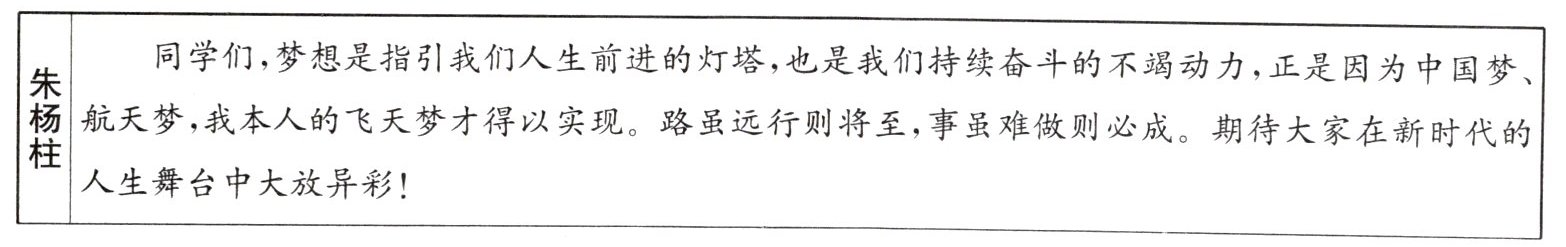 朱杨柱
同学们,梦想是指引我们人生前进的灯塔,也是我们持续奋斗的不竭动力,正是因为中国梦、
航天梦,我本人的飞天梦才得以实现。路虽远行则将至,事虽难做则必成。期待大家在新时代的
人生舞台中大放异彩!